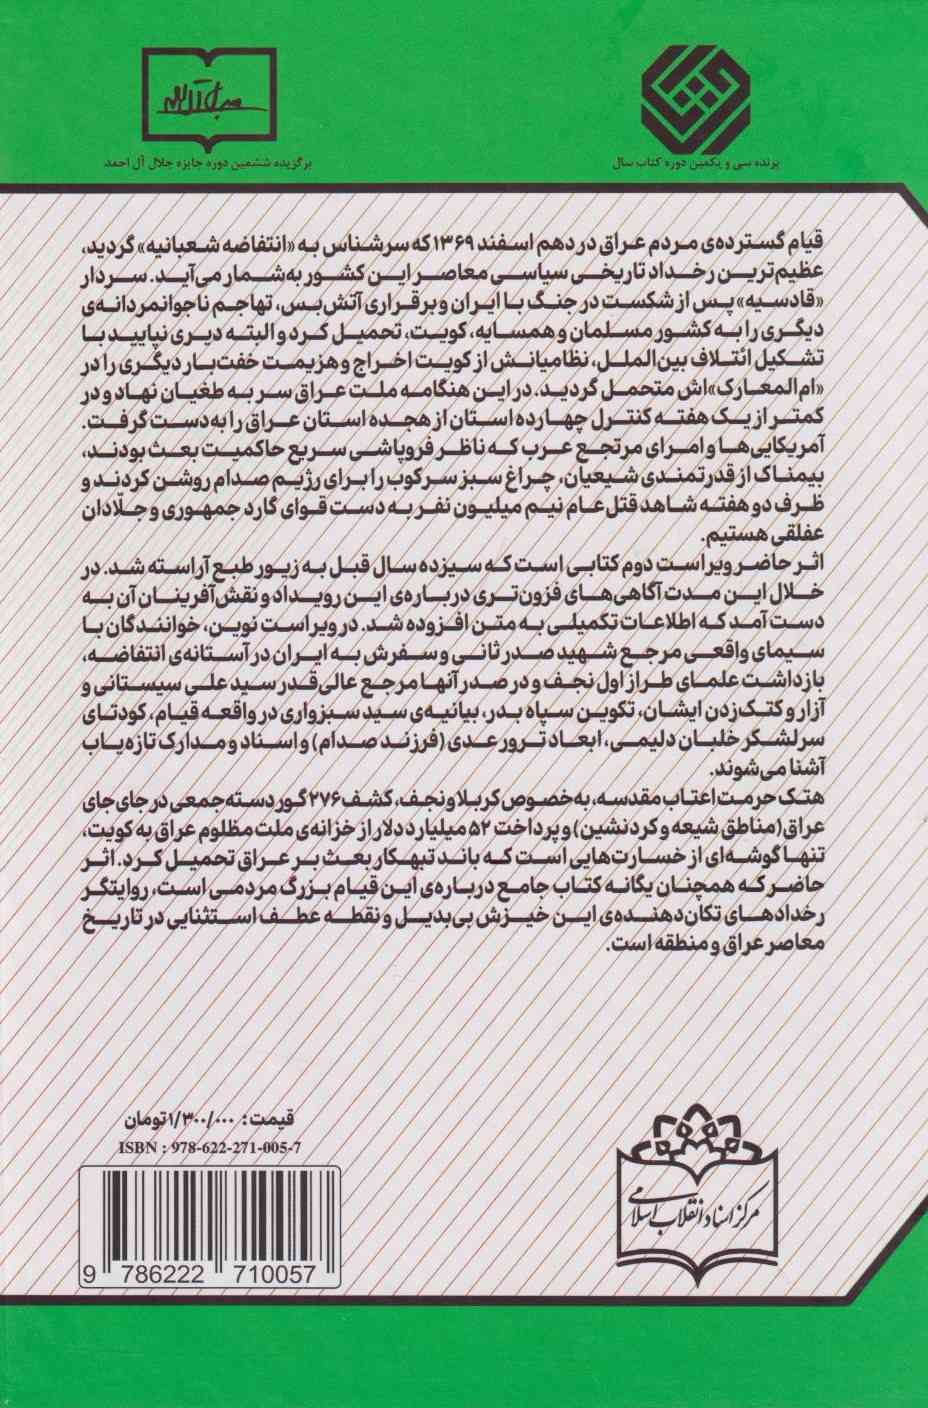 برنده سی و یکمین دوره کتاب سال
جلال آل احمد
برگزیده ششمین دوره جایزه جلال آل احمد
قیام گسترده‌ی مردم عراق در دهم اسفند ۱۳۶۹ که سرشناس به «انتفاضه شعبانیه» گردید،
عظیم‌ترین رخداد تاریخی سیاسی معاصر این کشور به‌شمار می‌آید. سردار
«قادسیه» پس از شکست در جنگ با ایران و برقراری آتش‌بس، تهاجم ناجوانمردانه‌ی
دیگری را به کشور مسلمان و همسایه، کویت، تحمیل کرد و البته دیری نپایید با
تشکیل ائتلاف بین‌الملل، نظامیانش از کویت اخراج و هزیمت خفت‌بار دیگری را در
«ام‌المعارک»اش متحمل گردید. در این هنگامه ملت عراق سر به طغیان نهاد و در
کمتر از یک هفته کنترل چهارده استان از هجده استان عراق را به‌دست گرفت.
آمریکایی‌ها و امرای مرتجع عرب که ناظر فروپاشی سریع حاکمیت بعث بودند،
بیمناک از قدرتمندی شیعیان، چراغ سبز سرکوب را برای رژیم صدام روشن کردند و
ظرف دو هفته شاهد قتل‌عام نیم میلیون نفر به دست قوای گارد جمهوری و جلّادان
عفلقی هستیم.
اثر حاضر ویراست دوم کتابی است که سیزده سال قبل به زیور طبع آراسته شد. در
خلال این مدت آگاهی‌های فزون‌تری درباره‌ی این رویداد و نقش‌آفرینان آن به
دست آمد که اطلاعات تکمیلی به متن افزوده شد. در ویراست نوین، خوانندگان با
سیمای واقعی مرجع شهید صدر ثانی و سفرش به ایران در آستانه‌ی انتفاضه،
بازداشت علمای طراز اول نجف و در صدر آنها مرجع عالی‌قدر سید علی سیستانی و
آزار و کتک‌زدن ایشان، تکوین سپاه بدر، بیانیه‌ی سید سبزواری در واقعه قیام، کودتای
سرلشکر خلبان دلیمی، ابعاد ترور عدی (فرزند صدام) و اسناد و مدارک تازه‌یاب
آشنا می‌شوند.
هتک حرمت اعتاب مقدسه، به‌خصوص کربلا و نجف، کشف ۲۷۶ گور دسته‌جمعی در جای جای
عراق (مناطق شیعه و کردنشین) و پرداخت ۵۲ میلیارد دلار از خزانه‌ی ملت مظلوم عراق به کویت،
تنها گوشه‌ای از خسارت‌هایی است که باند تبهکار بعث بر عراق تحمیل کرد. اثر
حاضر که همچنان یگانه کتاب جامع درباره‌ی این قیام بزرگ مردمی است، روایتگر
رخدادهای تکان‌دهنده‌ی این خیزش بی‌بدیل و نقطه عطف استثنایی در تاریخ
معاصر عراق و منطقه است.
قیمت: ۱/۳۰۰/۰۰۰تومان
ISBN : 978-622-271-005-7
9 786222 710057
مرکز اسناد انقلاب اسلامی